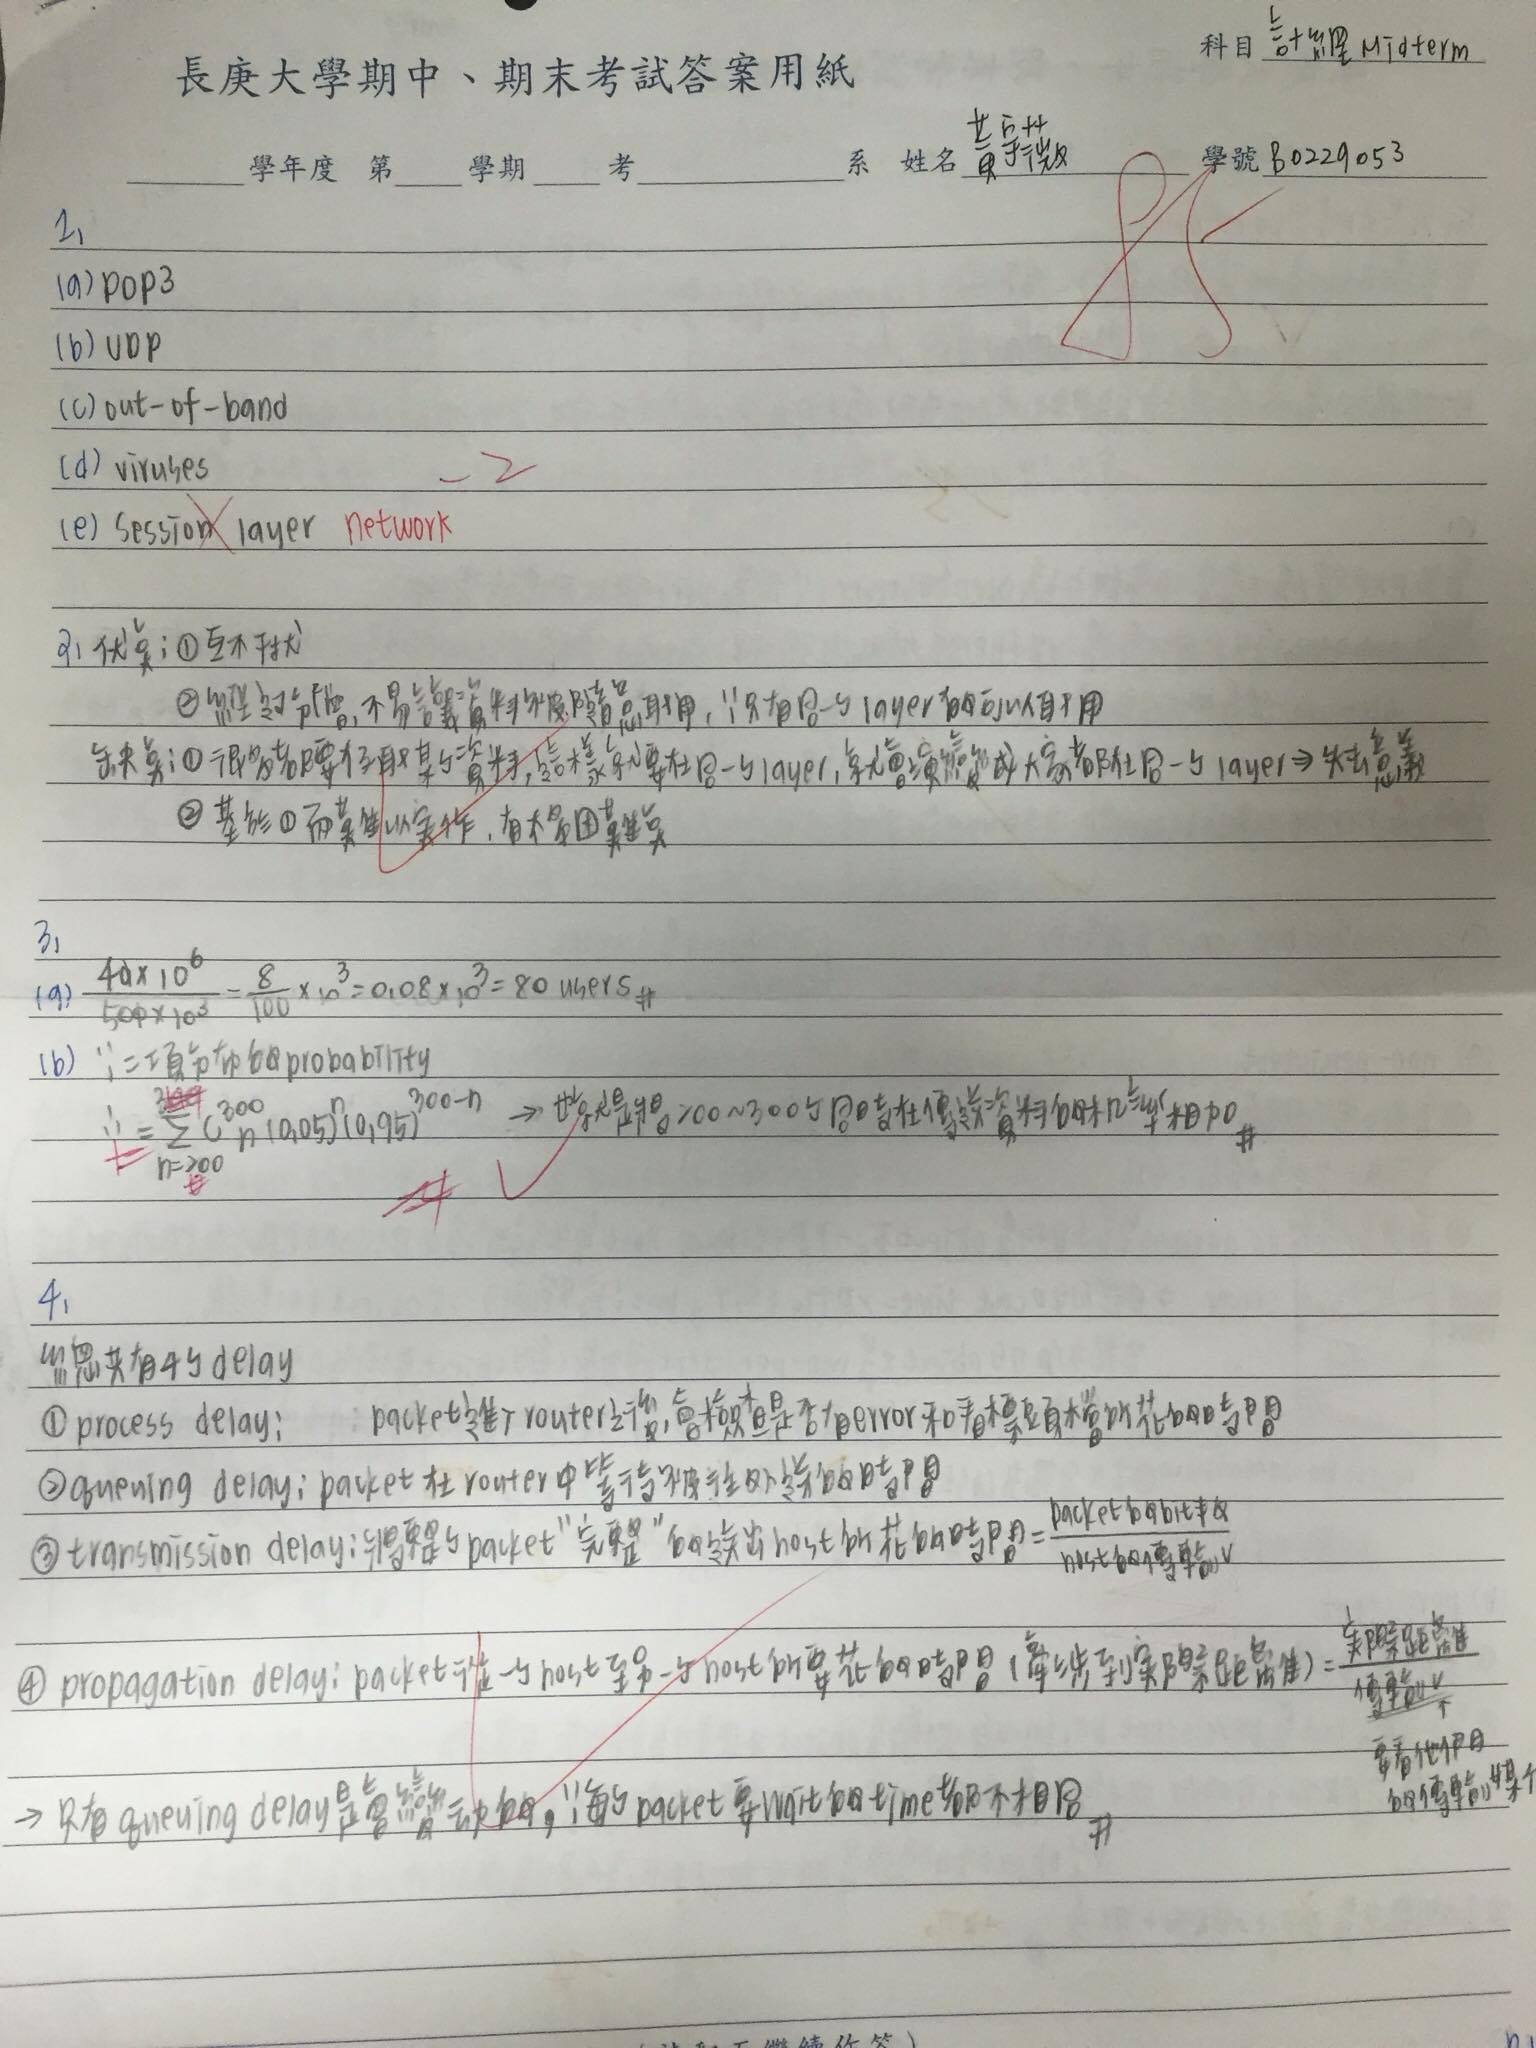 科目 計網 Midterm
長庚大學期中、期末考試答案用紙
學年度 第 學期 考 系 姓名 學號 B0229053
85
1,
(a) POP3
(b) UDP
(c) out-of-band
(d) viruses
-2
(e) session layer network
2, 優點: ① 互不干擾
② 經過分層, 不易讓資料被隨意取用, ∵只有同一個layer的可以使用
缺點: ① 很多都要存取某個資料, 這樣就要在同一個layer, 就會演變成大家都在同一個layer ⇒ 失去意義
② 基於①而難以實作, 有太多困難點
3,
(a) 40×10⁶ / 500×10³ = 8/100 × 10³ = 0.08×10³ = 80 users #
(b) ∵二項分布的probability
∴ = Σ n=200 C 300 n (0.05)^n (0.95)^300-n → 也就是把200~300個同時在傳送資料的机率相加 #
4,
總共有4個delay
① process delay: packet進了router之後, 會檢查是否有error和看標頭檔所花的時間
② queuing delay: packet在router中等待被往外送的時間
③ transmission delay: 將整個packet "完整" 的送出host所花的時間 = packet的bit數 / host的傳輸V
④ propagation delay: packet從一個host至另一個host所要花的時間 (牽涉到實際距離) = 實際距離 / 傳輸V
要看他們
的傳輸媒介
→ 只有queuing delay是會變動的, ∵每個packet要wait的time都不相同 #